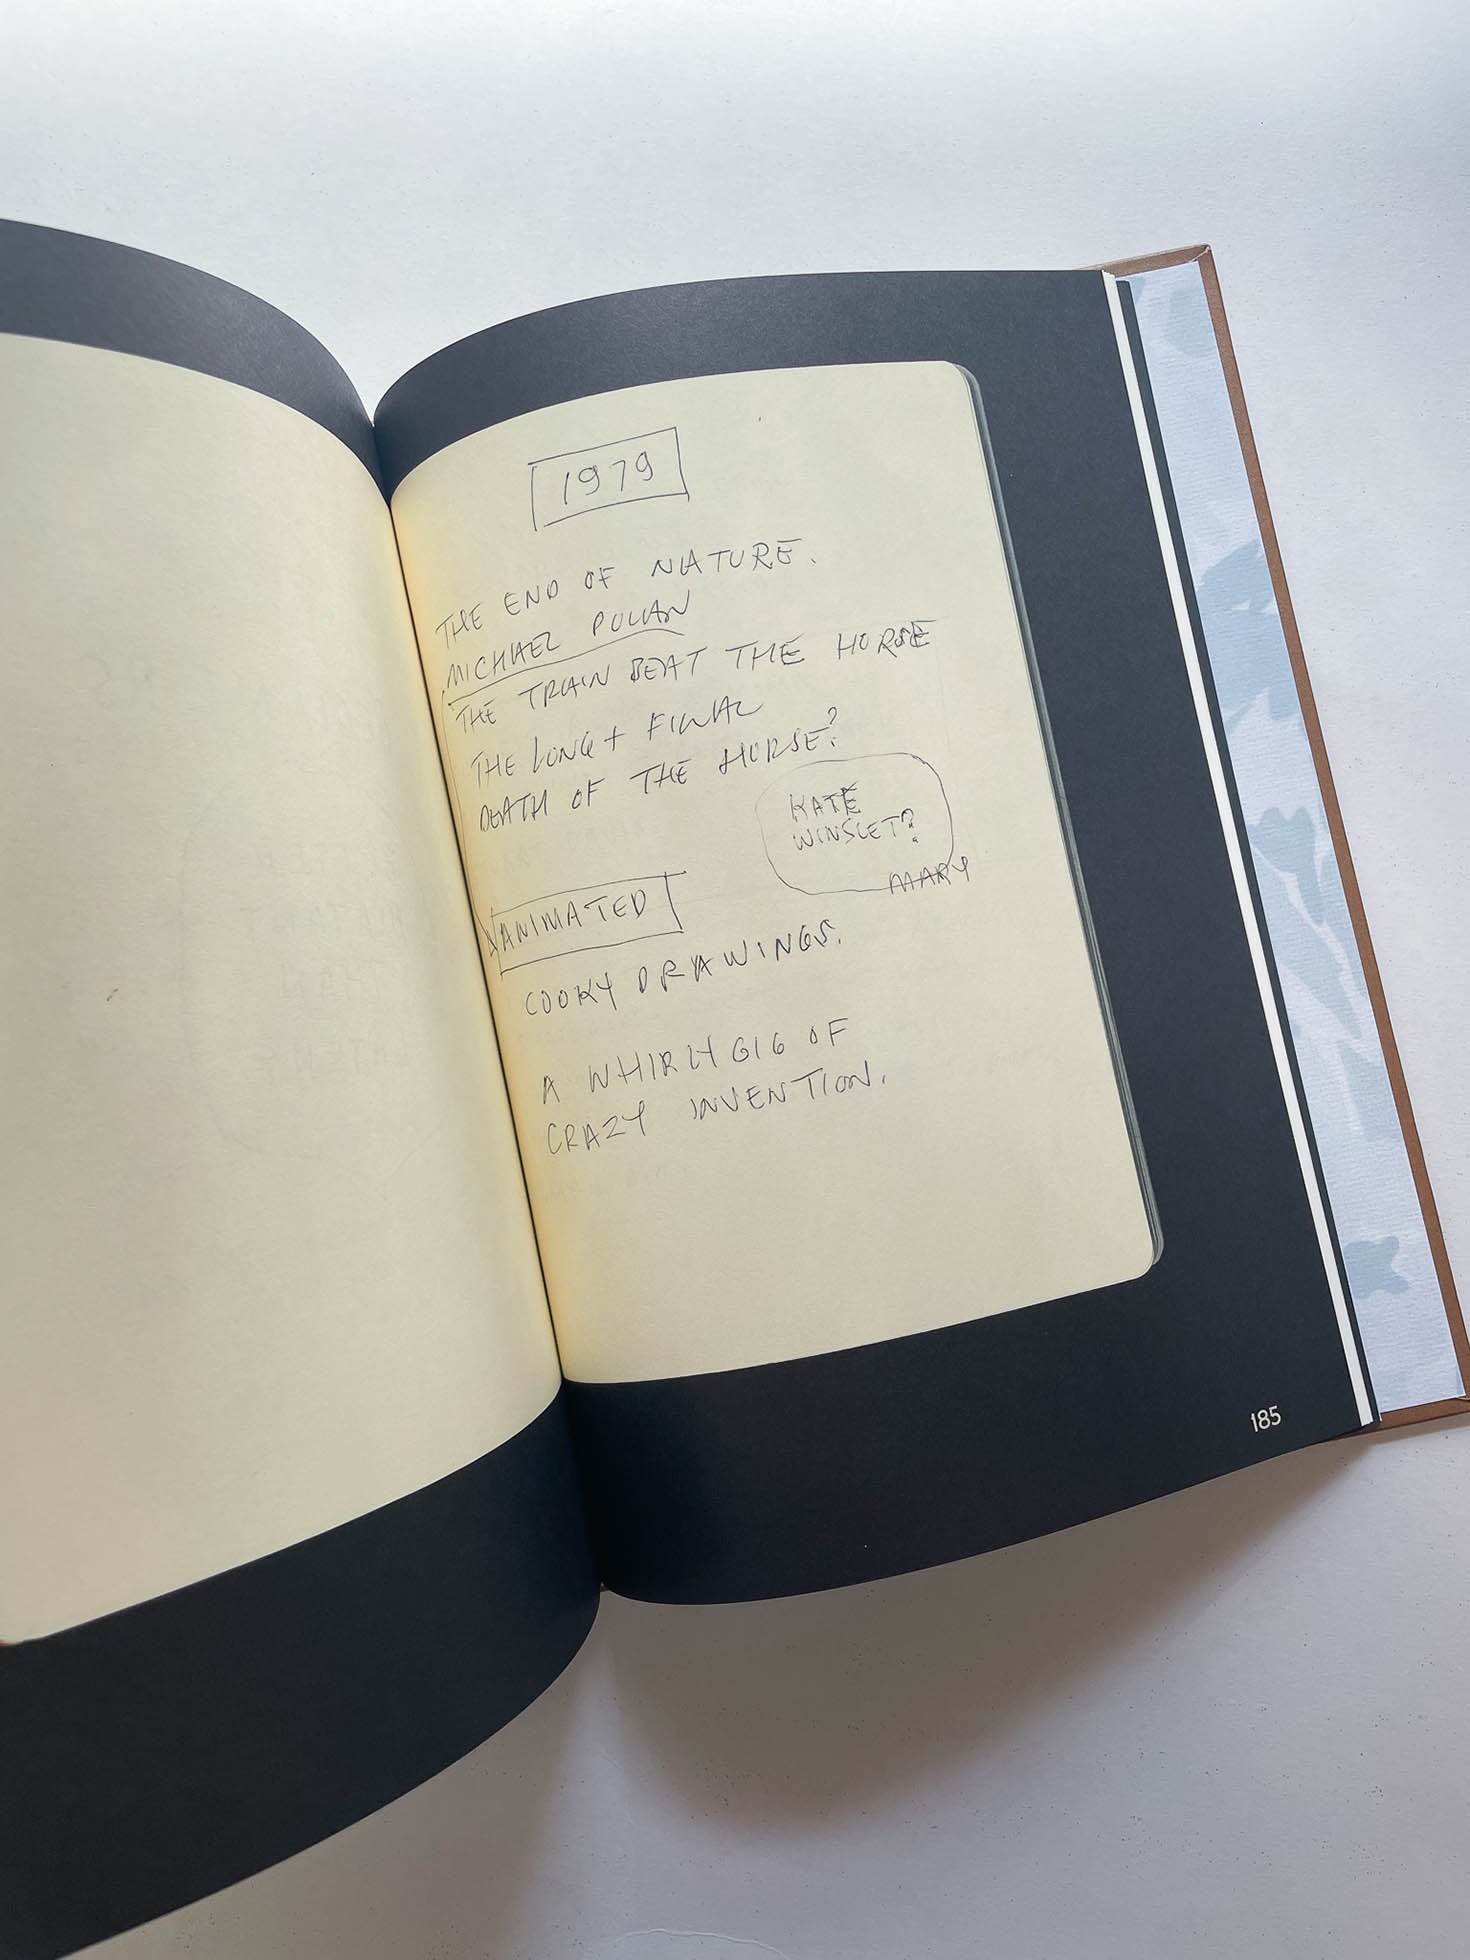 1979
THE END OF NATURE.
MICHAEL POLLAN
THE TRAIN BEAT THE HORSE
THE LONG + FINAL
DEATH OF THE HORSE?
KATE
WINSLET?
MARY
ANIMATED
COOKY DRAWINGS.
A WHIRLYGIG OF
CRAZY INVENTION.
185